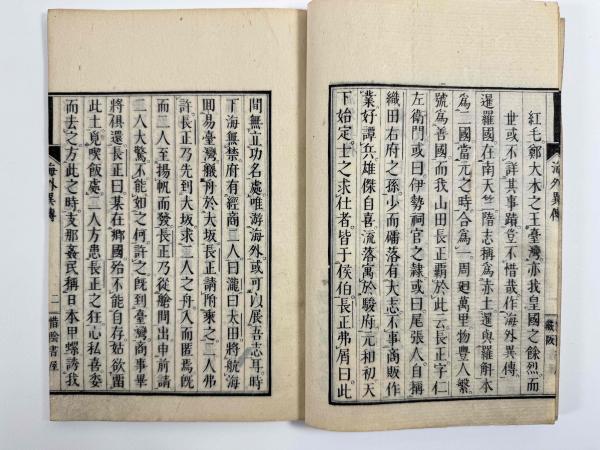 紅毛鄭大木之王臺灣亦我皇國之餘烈而
世或不詳其事蹟豈不惜哉作海外異傳
暹羅國在南天竺隋志稱為赤土暹與羅斛本
為二國當元之時合為一周廻萬里物豐人繁
號為善國而我山田長正覇於此云長正字仁
左衛門或曰伊勢祠官之隸或曰尾張人自稱
織田右府之孫少而磊落有大志不事商販作
業好譚兵雄傑自喜流落寓於駿府元和初天
下始定士之求仕者皆于侯伯長正弗屑曰此
藏版
間無立功名處唯游海外或可以展吾志耳時
下海無禁府有經商二人曰瀧曰太田將航海
回易臺灣艤舟於大坂長正請附乘之二人弗
許長正乃先到大坂求二人之舟入而匿焉既
而二人至揚帆而發長正乃從艙間出申前請
二人大驚不能如之何許之既到臺灣商事畢
將俱還長正曰某在鄉國殆不能自存姑欲留
此土覓喫飯處二人方患長正之狂心私喜委
而去之方此之時支那姦民稱日本甲螺誘我
海外異傳
二
惜陰書屋